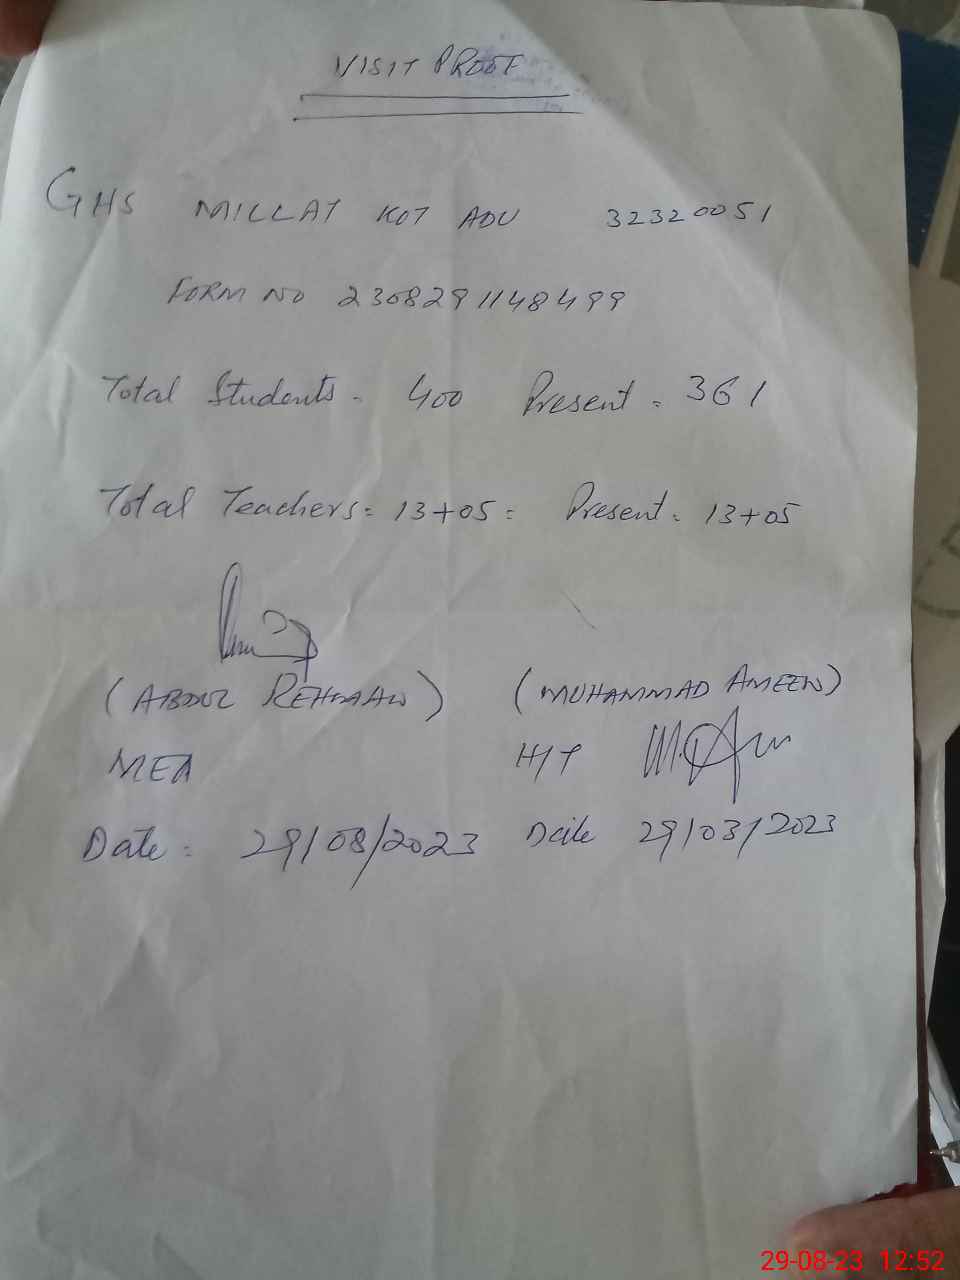 VISIT PROOF
GHS MILLAT KOT ADU 32320051
FORM NO 2308291148499
Total Students = 400 Present = 361
Total Teachers = 13+05 = Present = 13+05
(ABDUL REHMAN) (MUHAMMAD AMEEN)
MEA H/T
Date: 29/08/2023 Date 29/03/2023
29-08-23 12:52